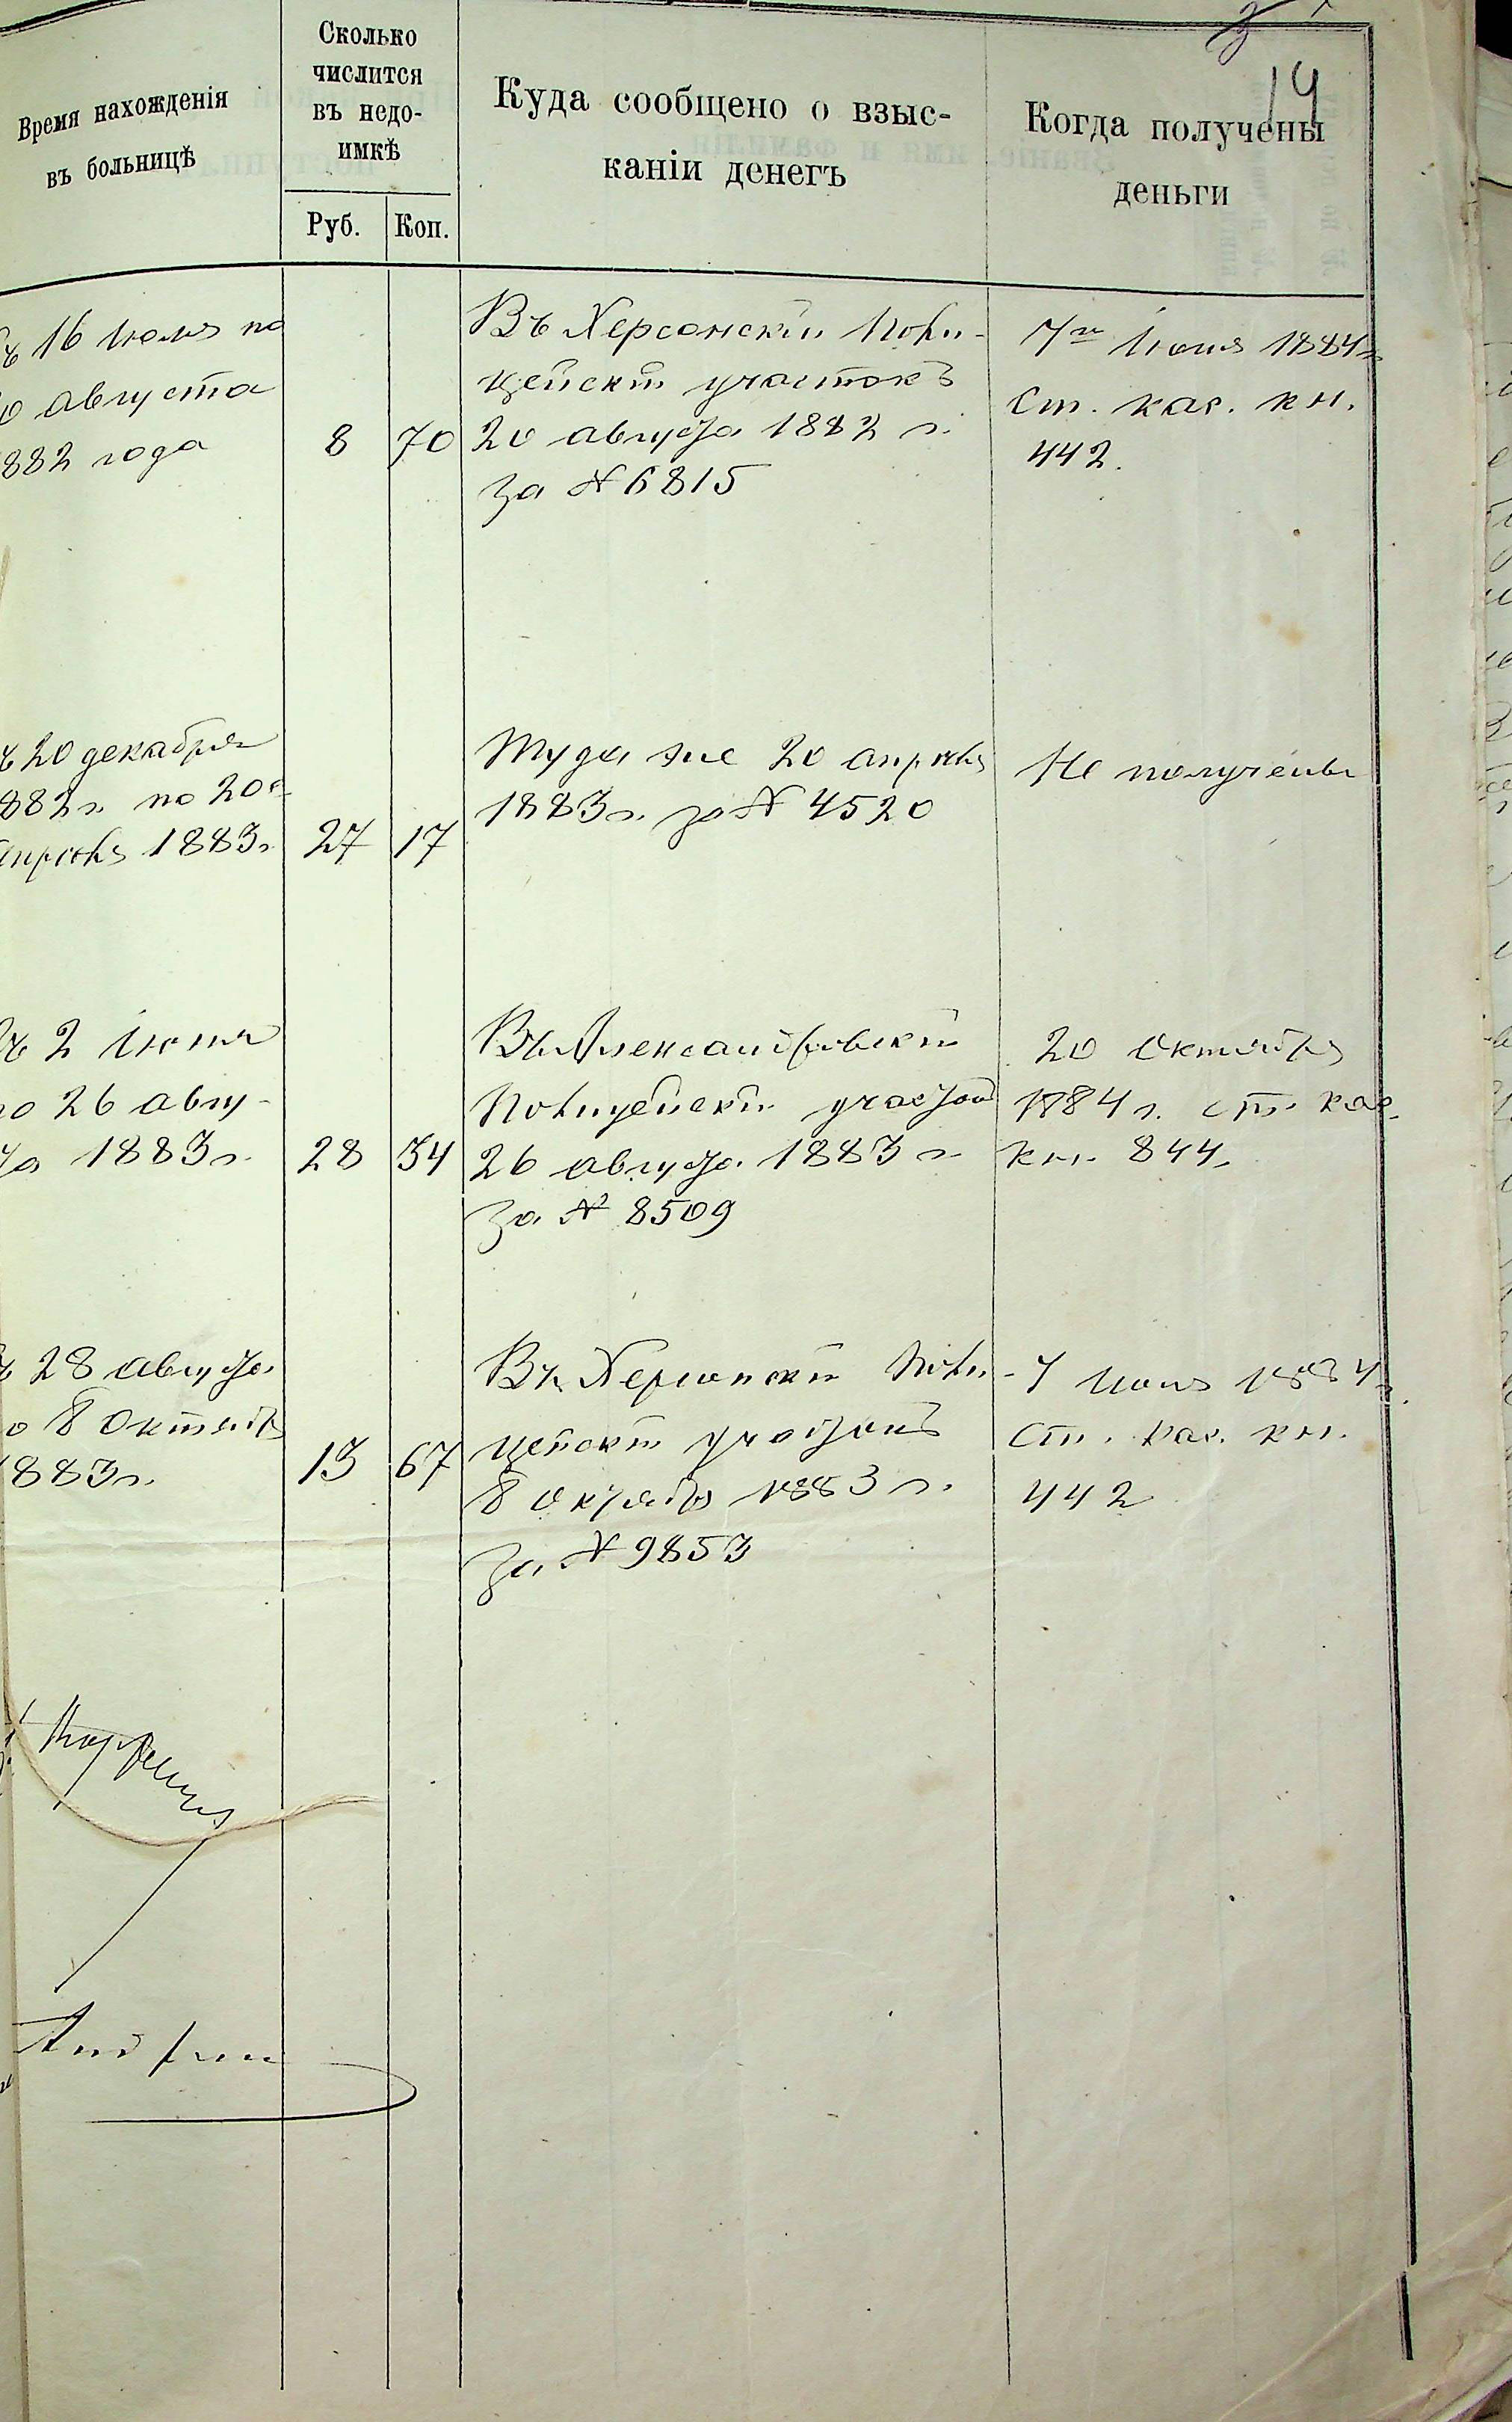 14
Время нахожденія
въ больницѣ
Сколько
числится
въ недо-
имкѣ
Руб. Коп.
Куда сообщено о взыс-
каніи денегъ
Когда получены
деньги
16 Іюля по
августа
882 года
8 70
Въ Херсонскій Поли-
цейскій участокъ
20 августа 1882 г.
за № 6815
7го Іюня 1884 г.
Ст. кас. кн.
442.
20 декабря
882 г. по 20е
апрѣля 1883 г.
27 17
Туда же 20 апрѣля
1883 г. за № 4520
Не получены
2 Іюня
по 26 авгу-
та 1883 г.
28 34
Въ Александровскій
Полицейскій участокъ
26 августа 1883 г.
за № 8509
20 Октября
1884 г. ст. кас.
кн. 844.
28 августа
8 Октября
883 г.
13 67
Въ Херсонскій Поли-
цейскій участокъ
8 Октября 1883 г.
за № 9853
7 Іюня 1884 г.
Ст. кас. кн.
442